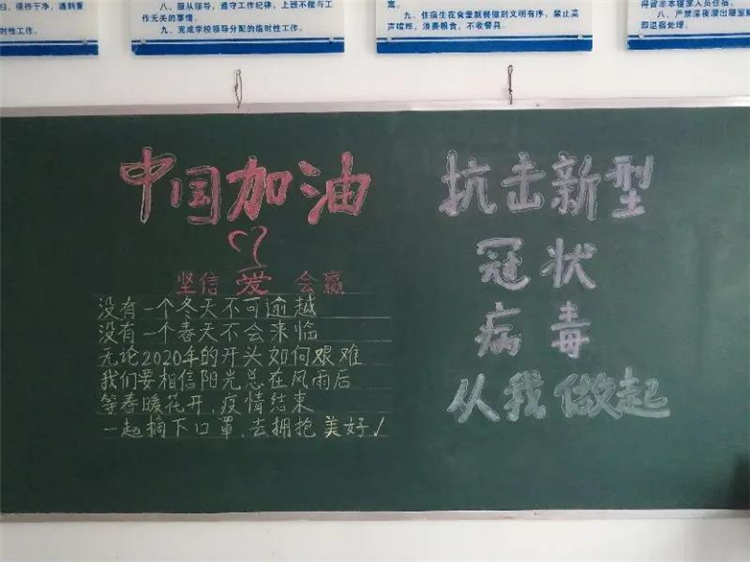 扫，保持干净，遇到重
时性工作。
八、服从领导，遵守工作纪律，上班不做与工
作无关的事情。
九、完成学校领导分配的临时性工作。
九、住宿生在食堂就餐做到文明有序，禁止高
声喧哗，浪费粮食，不收餐具。
八、严禁深夜溜出寝室
即退宿处理。
中国加油
坚信爱会赢
没有一个冬天不可逾越
没有一个春天不会来临
无论2020年的开头如何艰难
我们要相信阳光总在风雨后
等春暖花开，疫情结束
一起摘下口罩，去拥抱美好！
抗击新型
冠状
病毒
从我做起